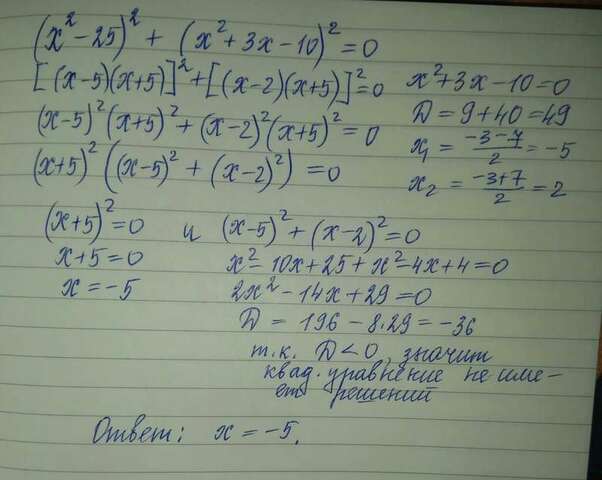 (x² - 25)² + (x² + 3x - 10)² = 0
[(x-5)(x+5)]² + [(x-2)(x+5)]² = 0
(x-5)²(x+5)² + (x-2)²(x+5)² = 0
(x+5)²((x-5)² + (x-2)²) = 0
x² + 3x - 10 = 0
D = 9 + 40 = 49
x₁ = (-3-7)/2 = -5
x₂ = (-3+7)/2 = 2
(x+5)² = 0 и (x-5)² + (x-2)² = 0
x+5 = 0
x = -5
x² - 10x + 25 + x² - 4x + 4 = 0
2x² - 14x + 29 = 0
D = 196 - 8·29 = -36
т.к. D < 0, значит
квад. уравнение не име-
ет решений
Ответ: x = -5.